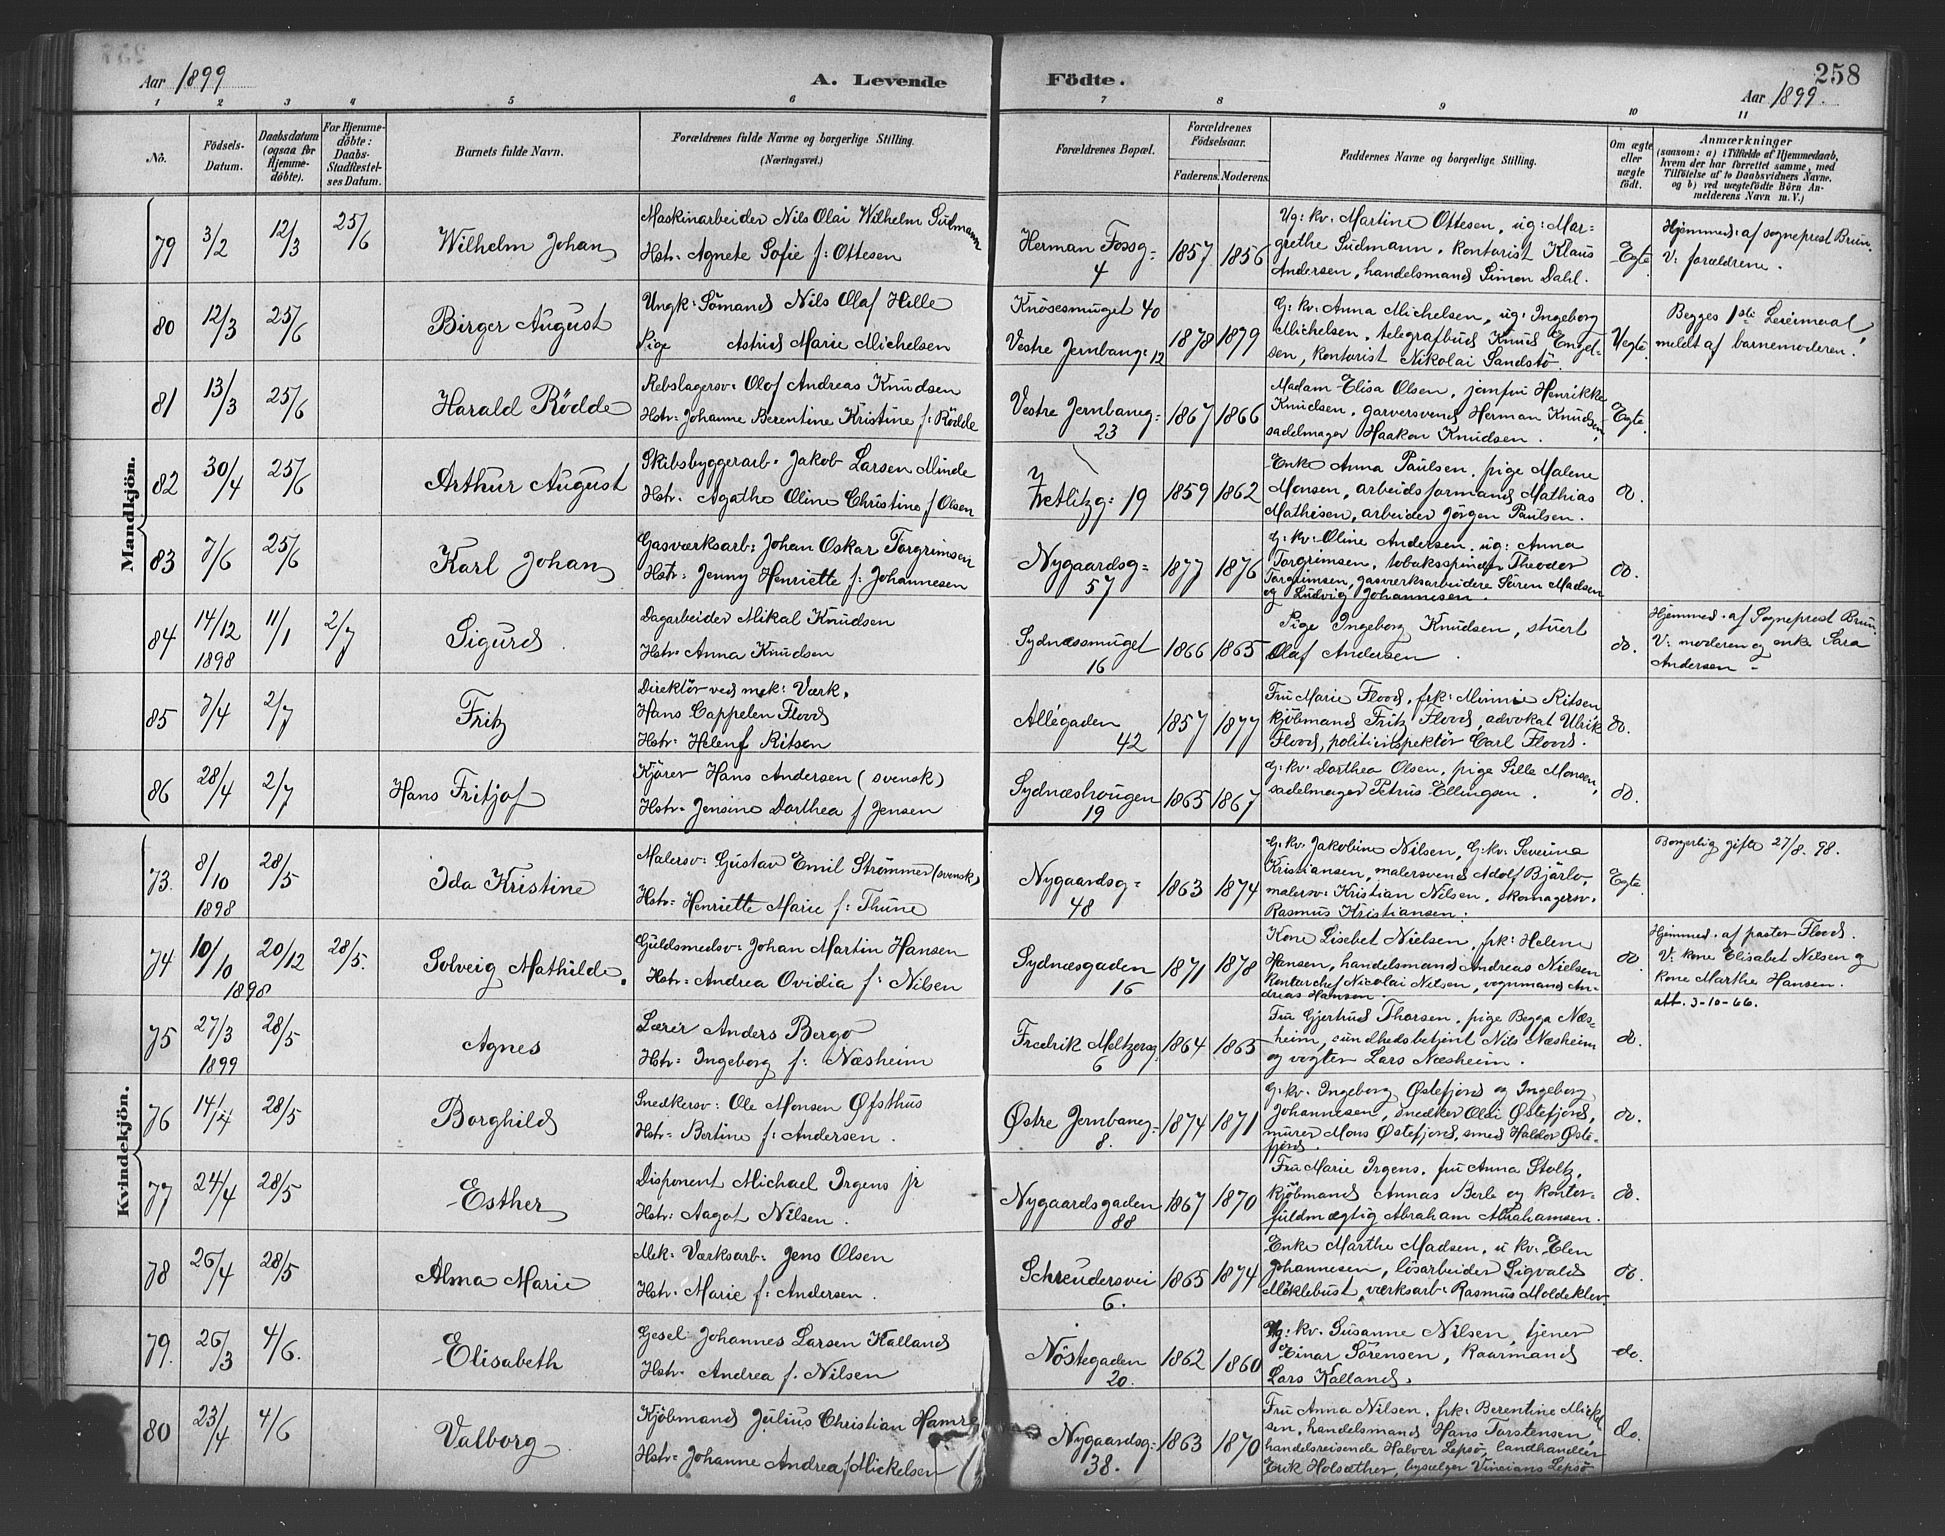 258
Aar 1899 A. Levende Födte. Aar 1899.
1 2 3 4 5 6 7 8 9 10 11
No.
Födsels-
Datum.
Daabsdatum
(ogsaa for
Hjemme-
döbte).
For Hjemme-
döbte:
Daabs-
Stadfæstel-
ses Datum.
Barnets fulde Navn.
Forældrenes fulde Navne og borgerlige Stilling.
(Næringsvei.)
Forældrenes Bopæl.
Forældrenes
Födselsaar.
Faderens. Moderens.
Faddernes Navne og borgerlige Stilling.
Om ægte
eller
uægte
födt.
Anmærkninger
(saasom: a) i Tilfælde af Hjemmedaab,
hvem der har forrettet samme, med
Tilföielse af to Daabsvidners Navne.
og b) ved uægtefödte Börn An-
melderens Navn m. V.)
Mandkjön.
79 3/2 12/3 25/6 Wilhelm Johan
Maskinarbeider Nils Olai Wilhelm Sudmann
Hstr: Agnete Sofie f: Ottesen
Herman Fossg=
4
1857 1856
Ug: kv. Martine Ottesen, ug: Mar-
grethe Sudmann, kontorist Klaus
Andersen, handelsmand Simon Dahl.
Egte
Hjemmed. af sogneprest Brun.
V: forældrene.
80 12/3 25/6 Birger August
Ungk: Sömand Nils Olaf Hille
Pige Astrid Marie Michelsen
Knösesmuget 40
Vestre Jernbaneg: 12
1878 1879
G: kv. Anna Michelsen, ug: Ingeborg
Michelsen, telegrafbud Knud Engel-
sen, kontorist Nikolai Sandstö.
Uegte
Begges 1ste Leiermaal,
meldt af barnemoderen.
81 13/3 25/6 Harald Rödde
Rebslagersv: Olof Andreas Knudsen
Hstr: Johanne Berentine Kristine f: Rödde
Vestre Jernbaneg=
23
1867 1866
Madam Elisa Olsen, jomfru Henrikke
Knudsen, garversvend Herman Knudsen,
sadelmager Haakon Knudsen.
Egte.
82 30/4 25/6 Arthur August
Skibsbyggerarb. Jakob Larsen Minde
Hstr: Agathe Oline Christine f Olsen
Wetlitzg: 19
1859 1862
Enke Anna Paulsen, pige Malene
Monsen, arbeidsformand Mathias
Mathisen, arbeider Jörgen Paulsen.
do.
83 7/6 25/6 Karl Johan
Gasværksarb: Johan Oskar Torgrimsen
Hstr: Jenny Henriette f: Johannesen
Nygaardsg=
57
1877 1876
G: kv: Oline Andersen, ug: Anna
Torgrimsen, tobaksspinder Theodor
Torgrimsen, gasværksarbeidere Sören Madsen
og Ludvig Johannesen.
do.
84 14/12 1898 11/1 2/7 Sigurd
Dagarbeider Mikal Knudsen
Hstr: Anna Knudsen
Sydnæssmuget
16
1866 1865
Pige Ingeborg Knudsen, stuert
Olaf Andersen.
do.
Hjemmed. af Sogneprest Brun.
V: moderen og enke Sara
Andersen
85 7/4 2/7 Fritz
Direktör ved mek: Værk.
Hans Cappelen Flood
Hstr: Helene f Ritsen
Allégaden
42
1857 1877
Fru Marie Flood, frk: Minnie Ritsen
kjöbmand Fritz Flood, advokat Ulrik
Flood, politiinspektör Carl Flood.
do.
86 28/4 2/7 Hans Fritjof
Kjörer Hans Andersen (svensk)
Hstr: Jensine Dorthea f Jensen
Sydnæshougen
19
1865 1867
G: kv: Dorthea Olsen, pige Sille Monsen,
sadelmager Petrus Ellingsen.
do.
Kvindekjön.
73. 8/10 1898 28/5 Ida Kristine
Malersv: Gustav Emil Strömmer (svensk)
Hstr: Henriette Marie f: Thune
Nygaardsg=
48
1863 1874
G: kv. Jakobine Nilsen, G: kv. Severine
Kristiansen, malersvend Adolf Bjärlov,
malersv: Kristian Nilsen, skomagersv.
Rasmus Kristiansen.
Egte.
Borgerlig gifte 27/8. 98.
74 10/10 1898 20/12 28/5. Solveig Mathilde.
Guldsmedsv: Johan Martin Hansen
Hstr: Andrea Ovidia f: Nilsen
Sydnæsgaden
16
1871 1878
Kone Lisebet Nielsen, frk: Helene
Hansen, handelsmand Andreas Nielsen
Kontorchef Nicolai Nilsen, vognmand An-
dreas Hansen.
do
Hjemmed. af pastor Flood.
V: kone Elisabet Nilsen og
kone Marthe Hansen.
att. 3-10-66.
75 27/3 1899 28/5 Agnes
Lærer Anders Bergo
Hstr: Ingeborg f: Næsheim
Fredrik Meltzersg.
6
1864 1865
Fru Gjertrud Thorsen, pige Begga Næs-
heim, sundhedsbetjent Nils Næsheim
og vogter Lars Næsheim.
do.
76 14/4 28/5 Borghild
Snedkersv: Ole Monsen Øfsthus
Hstr: Bertine f: Andersen.
Østre Jernbaneg=
8.
1874 1871
G: kv. Ingeborg Østefjord og Ingeborg
Johannesen, snedker Olai Østefjord,
murer Mons Østefjord, smed Haldor Øste-
fjord.
do.
77 24/4 28/5 Esther
Disponent Michael Irgens jr
Hstr: Aagot Nilsen.
Nygaardsgaden
88
1867 1870
Fru Marie Irgens, fru Anna Stoltz,
kjöbmand Annas Berle og kontor-
fuldmægtig Abraham Abrahamsen.
do.
78 26/4 28/5 Alma Marie
Mek: Værksarb: Jens Olsen
Hstr: Marie f: Andersen.
Schreudersvei
6.
1865 1874
Enke Marthe Madsen, u kv: Elen
Johannesen, lösarbeider Sigvald
Möklebust, værksarb: Rasmus Moldeklev.
do.
79. 26/3 4/6. Elisabeth
Gesel: Johannes Larsen Kalland
Hstr. Andrea f. Nilsen
Nöstegaden
20.
1862 1860
Ug: kv. Susanne Nilsen, tjener
Einar Sörensen, Kaarmand
Lars Kalland.
do.
80 23/4 4/6 Valborg
Kjöbmand Julius Christian Hamre
Hstr: Johanne Andrea f Mickelsen
Nygaardsg:
38.
1863 1870
Fru Anna Nilsen, frk: Berentine Mickel-
sen, handelsmand Hans Torstensen,
handelsreisende Halver Lepsö, landhandler
Erik Holsæther, bysælger Vincians Lepsö
do.